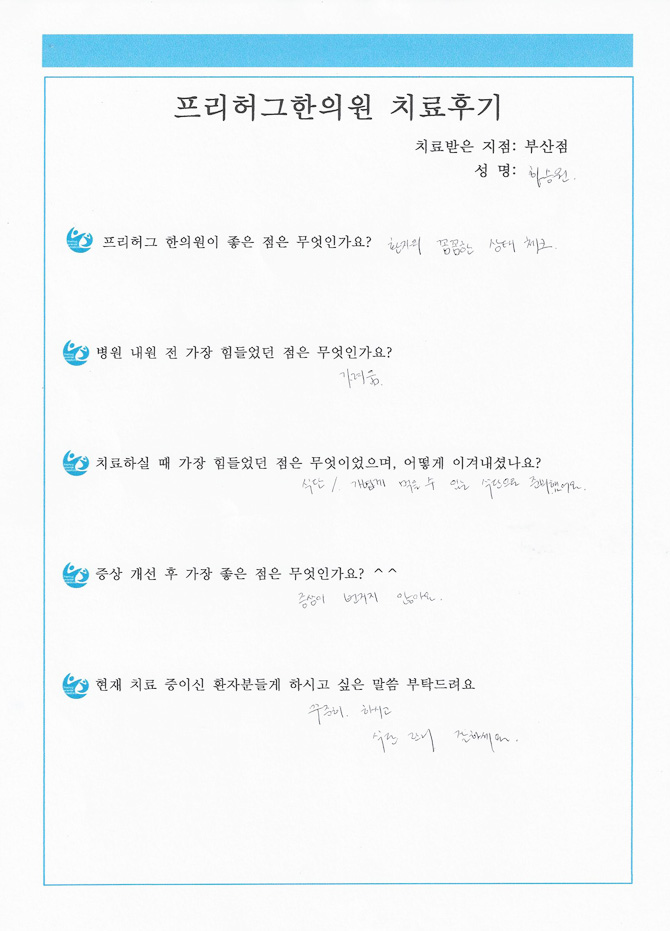 프리허그한의원 치료후기
치료받은 지점: 부산점
성 명:
프리허그 한의원이 좋은 점은 무엇인가요? 환자의 꼼꼼한 상태 체크.
병원 내원 전 가장 힘들었던 점은 무엇인가요?
가려움.
치료하실 때 가장 힘들었던 점은 무엇이었으며, 어떻게 이겨내셨나요?
식단 / 개볍게 먹을 수 있는 식단으로 준비했어요.
증상 개선 후 가장 좋은 점은 무엇인가요? ^ ^
증상이 번지지 않아요.
현재 치료 중이신 환자분들게 하시고 싶은 말씀 부탁드려요
꾸준히. 하시고
식단 관리 잘하세요.